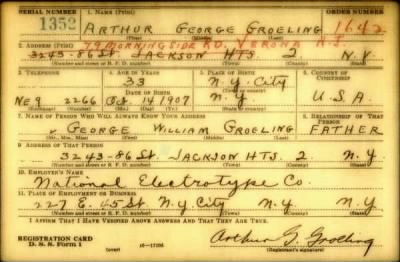 SERIAL NUMBER 1. NAME (Print) ORDER NUMBER
1352 ARTHUR GEORGE GROELING 1642
2. ADDRESS (Print) 79 MORNINGSIDE RD. VERONA N.J.
3243-86 St. JACKSON HTS. 2 N.Y.
(Number and street or R. F. D. number) (Town) (County) (State)
3. TELEPHONE 4. AGE IN YEARS 5. PLACE OF BIRTH 6. COUNTRY OF CITIZENSHIP
33 N.Y. City
(Town or county)
DATE OF BIRTH
NE 9 2266 Oct. 14 1907 N.Y. U.S.A.
(Exchange) (Number) (Mo.) (Day) (Yr.) (State or country)
7. NAME OF PERSON WHO WILL ALWAYS KNOW YOUR ADDRESS 8. RELATIONSHIP OF THAT PERSON
GEORGE WILLIAM GROELING FATHER
(Mr., Mrs., Miss) (First) (Middle) (Last)
9. ADDRESS OF THAT PERSON
3243-86 St. JACKSON HTS. 2 N.Y.
(Number and street or R. F. D. number) (Town) (County) (State)
10. EMPLOYER'S NAME
National Electrotype Co.
11. PLACE OF EMPLOYMENT OR BUSINESS
227 E. 45 St N.Y. City N.Y. N.Y.
(Number and street or R. F. D. number) (Town) (County) (State)
I AFFIRM THAT I HAVE VERIFIED ABOVE ANSWERS AND THAT THEY ARE TRUE.
REGISTRATION CARD
D. S. S. Form 1 (over) 16-17105 Arthur G. Groeling
(Registrant's signature)